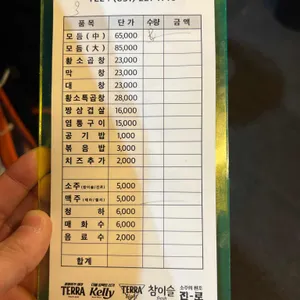 품 목 단 가 수량 금 액
모 듬 (中) 65,000
모 듬 (大) 85,000
황 소 곱 창 23,000
막 창 23,000
대 창 23,000
황소특곱창 28,000
짱 삼 겹 살 16,000
염 통 구 이 15,000
공 기 밥 1,000
볶 음 밥 3,000
치 즈 추 가 2,000
소주 5,000
맥주 5,000
청 하 6,000
매 화 수 6,000
음 료 수 2,000
합계
TERRA Kelly TERRA Light 참이슬 fresh 진로